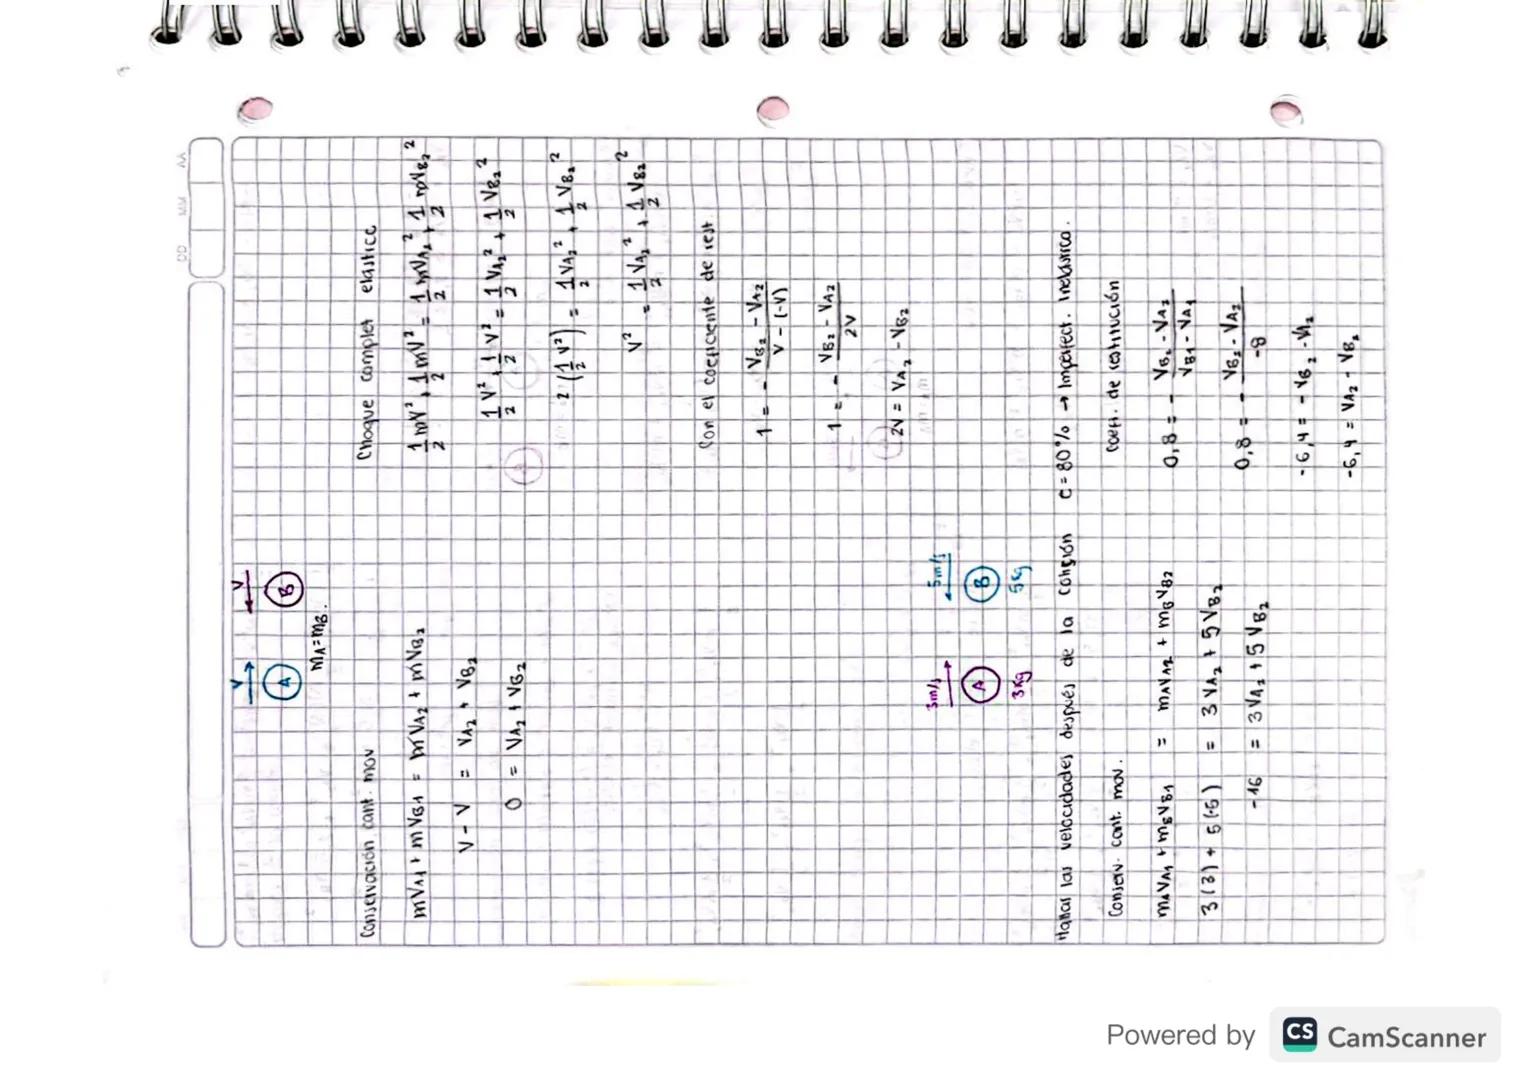 DD MM AA
V V
A B
mA = mB.
Conservación cant. mov
mVA1 + mVB1 = mVA2 + mVB2
V - V = VA2 + VB2
0 = VA2 + VB2
Choque complet elastico
1/2 mV² + 1/2 mV² = 1/2 mVA2² + 1/2 mVB2²
1/2 V² + 1/2 V² = 1/2 VA2² + 1/2 VB2²
2 (1/2 V²) = 1/2 VA2² + 1/2 VB2²
V² = 1/2 VA2² + 1/2 VB2²
Con el coeficiente de rest.
1 = - (VB2 - VA2)/(V - (-V))
1 = - (VB2 - VA2)/2V
2V = VA2 - VB2
3m/s 5m/s
A B
3kg 5kg
Hallar las velocidades después de la colisión e = 80% → Imperfect. Inelástico.
Conserv. cant. mov.
mAVA1 + mBVB1 = mAVA2 + mBVB2
3(3) + 5(-5) = 3VA2 + 5VB2
-16 = 3VA2 + 5VB2
Coefi. de restitución
0,8 = - (VB2 - VA2)/(VB1 - VA1)
0,8 = - (VB2 - VA2)/-8
-6,4 = -VB2 - VA2
-6,4 = VA2 - VB2
Powered by CS CamScanner